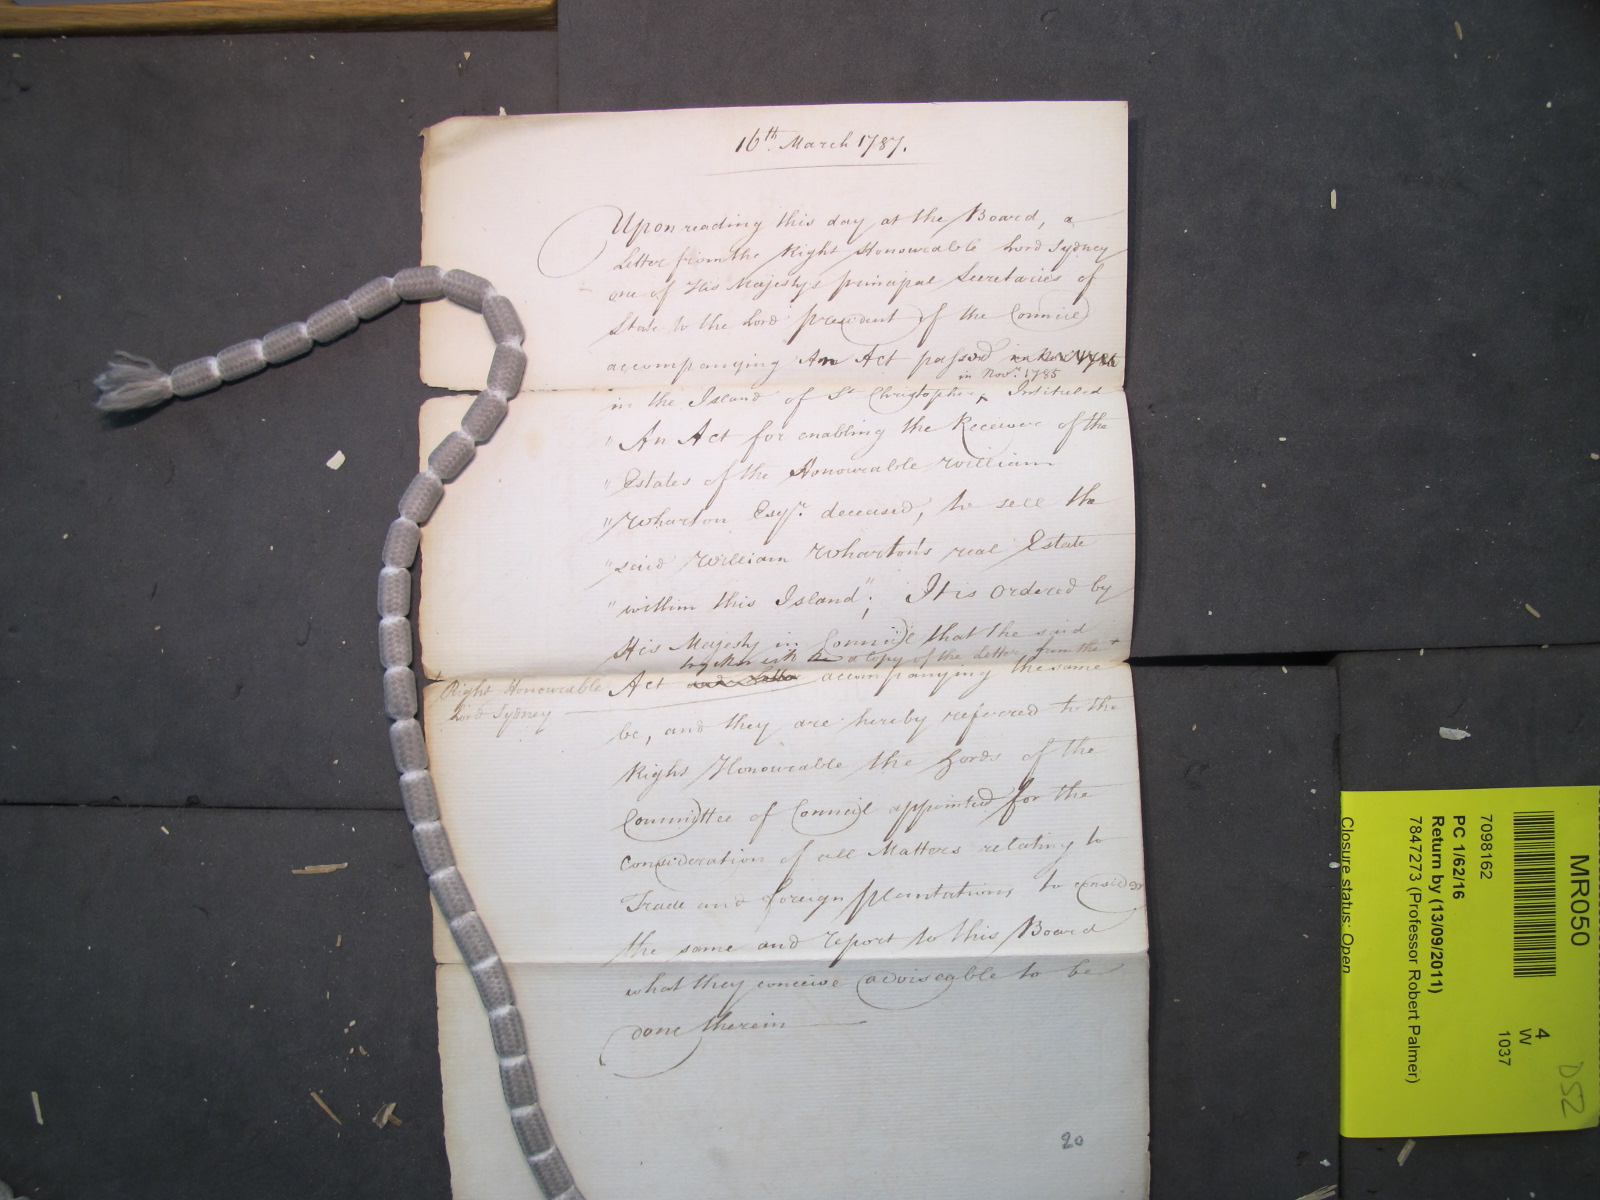 16th March 1787.
Upon reading this day at the Board, a
Letter from the Right Honourable Lord Sydney
one of His Majestys principal Secretaries of
State to the Lord president of the Council
accompanying An Act passed
in Novr. 1785
in the Island of St Christopher, Intituled
" An Act for enabling the Receiver of the
" Estates of the Honourable William
" Wharton Esqr. deceased, to sell the
" said William Wharton's real Estate
" within this Island"; It is ordered by
His Majesty in Council that the said
together with a Copy of the Letter from the +
Act and Letter accompanying the same
+
Right Honourable
Lord Sydney
be, and they are hereby referred to the
Right Honourable the Lords of the
Committee of Council appointed for the
consideration of all Matters relating to
Trade and foreign plantations, to consider
the same and report to this Board
what they conceive adviseable to be
done therein
20
MR050
7098162
PC 1/62/16
Return by (13/09/2011)
7847273 (Professor Robert Palmer)
Closure status: Open
4
W
1037
D52